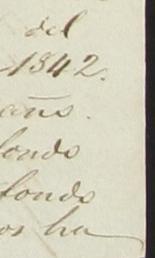 del
1842.
años.
fondo
fondo
os ha